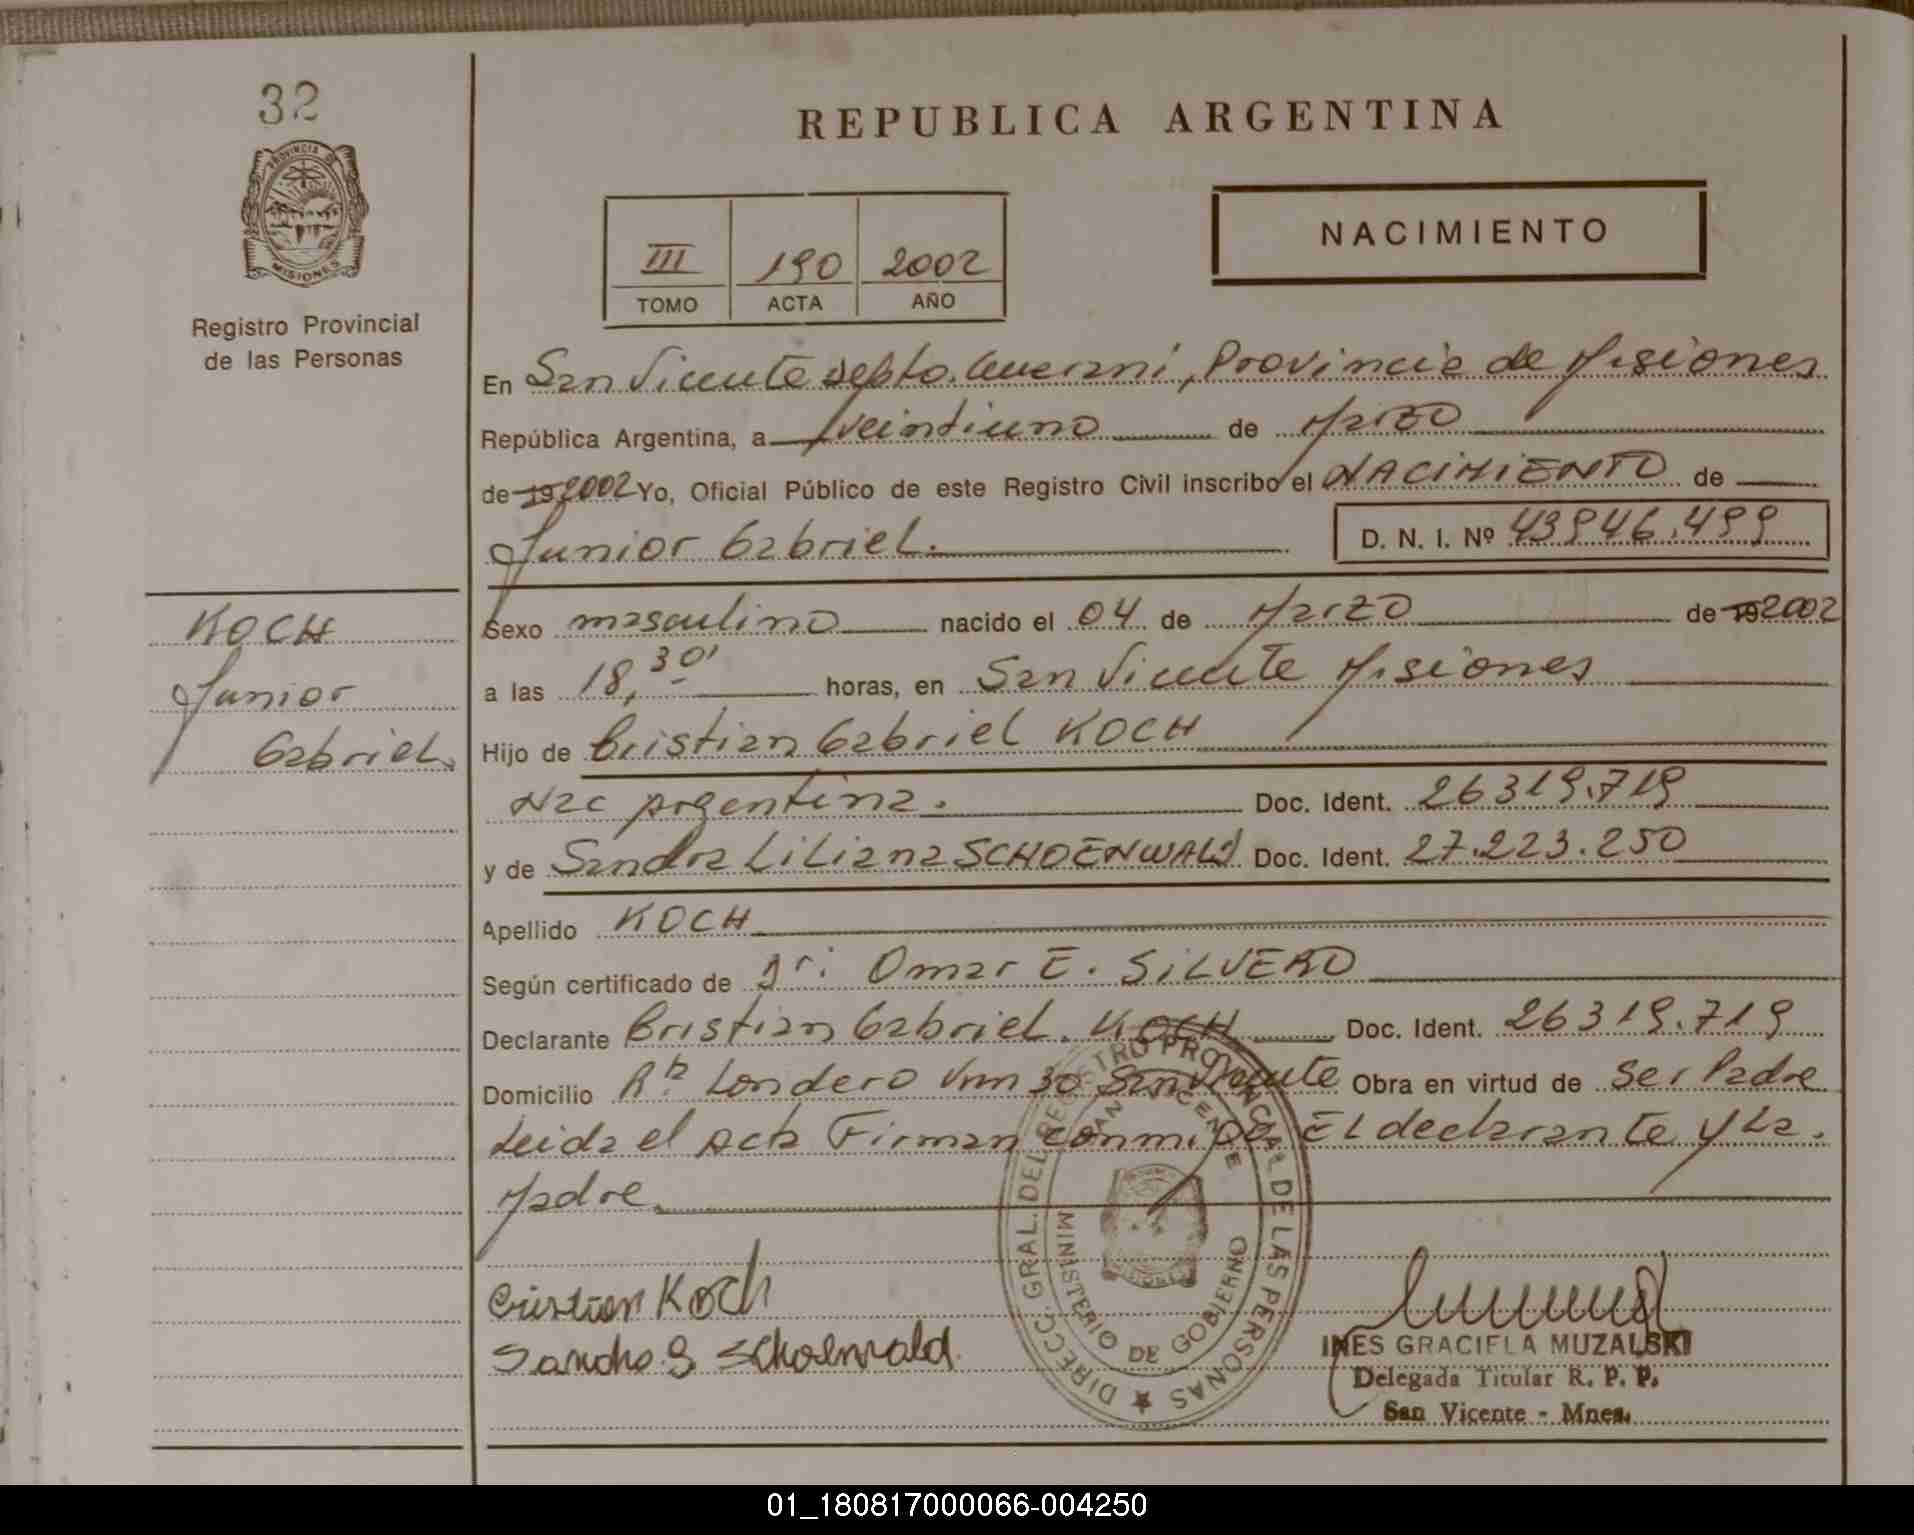 32
PROVINCIA DE
MISIONES
Registro Provincial
de las Personas
REPUBLICA ARGENTINA
III 190 2002
TOMO ACTA AÑO
NACIMIENTO
En San Vicente depto. Guarani, Provincia de Misiones
República Argentina, a veintiuno de Marzo
de 19 2002 Yo, Oficial Público de este Registro Civil inscribo el NACIMIENTO de
Junior Gabriel. D. N. I. Nº 43946.499
KOCH
Junior
Gabriel
Sexo masculino nacido el 04 de Marzo de 19 2002
a las 18,30' horas, en San Vicente Misiones
Hijo de Cristian Gabriel KOCH
Nac Argentina. Doc. Ident. 26319.719
y de Sandra Liliana SCHOENWALD Doc. Ident. 27.223.250
Apellido KOCH
Según certificado de Dr. Omar E. SILVERO
Declarante Cristian Gabriel. KOCH Doc. Ident. 26319.719
Domicilio Londero Km 30 San Vicente Obra en virtud de ser Padre
Leida el Acta Firman conmigo El declarante y La.
Madre
DIRECC. GRAL. DEL REGISTRO PROVINCIAL DE LAS PERSONAS
SAN VICENTE
MINISTERIO DE GOBIERNO
Cristian Koch
Schoenwald
INES GRACIELA MUZALSKI
Delegada Titular R. P. P.
San Vicente - Mnes.
01_180817000066-004250